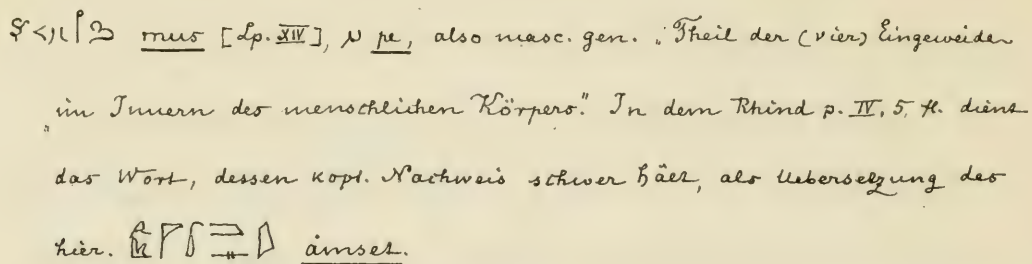 mus [Lp. XIV], pe, also masc. gen. „Theil der (vier) Eingeweiden
„im Innern des menschlichen Körpers." In dem Rhind p. IV, 5, dient
das Wort, dessen kopt. Nachweis schwer hält, als Uebersetzung des
hier. åmset.